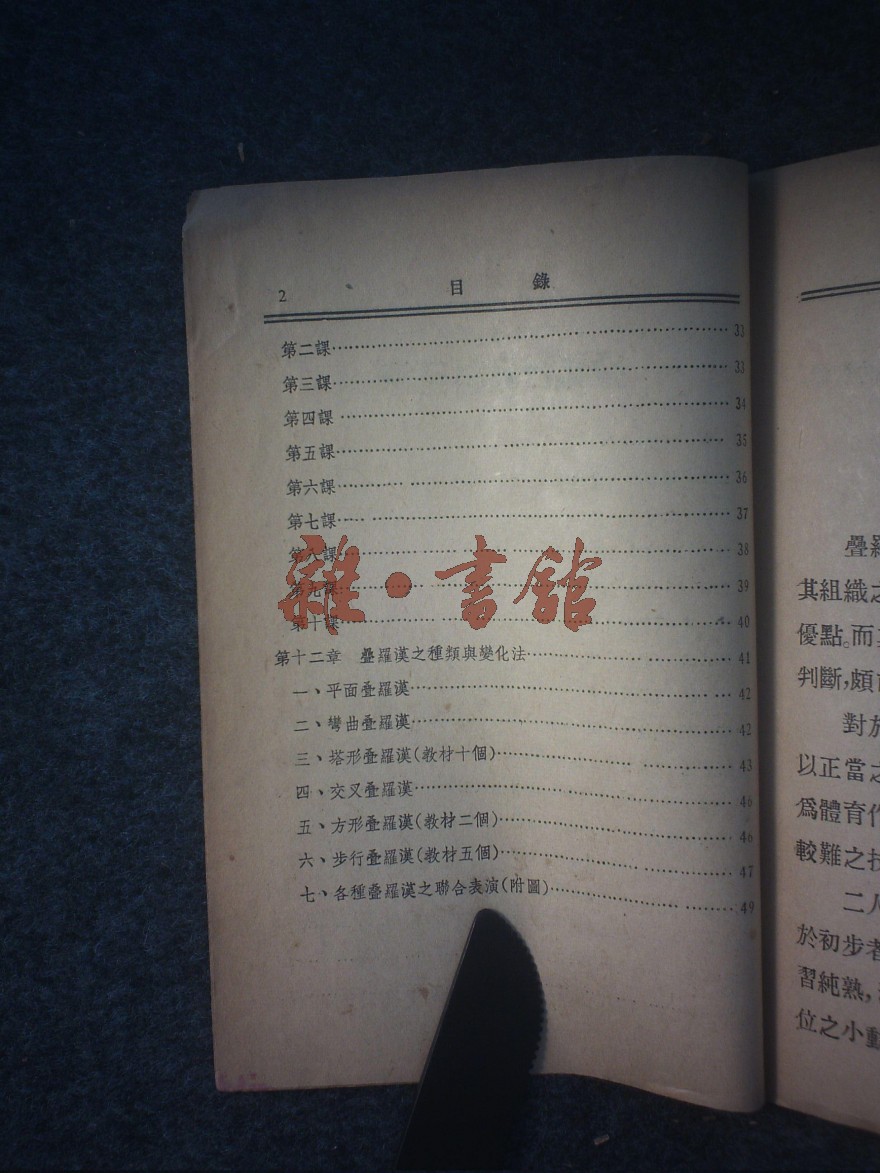 2 目錄
第二課 31
第三課 33
第四課 34
第五課 35
第六課 36
第七課 37
第八課 38
第九課 39
第十課 40
第十二章 疊羅漢之種類與變化法 41
一、平面疊羅漢 42
二、彎曲疊羅漢 42
三、塔形疊羅漢(教材十個) 43
四、交叉疊羅漢 46
五、方形疊羅漢(教材二個) 46
六、步行疊羅漢(教材五個) 47
七、各種疊羅漢之聯合表演(附圖) 49
雜·書館
疊羅
其組織之
優點。而
判斷,頗
對於
以正當之
爲體育作
較難之技
二人
於初步者
習純熟,
位之小動